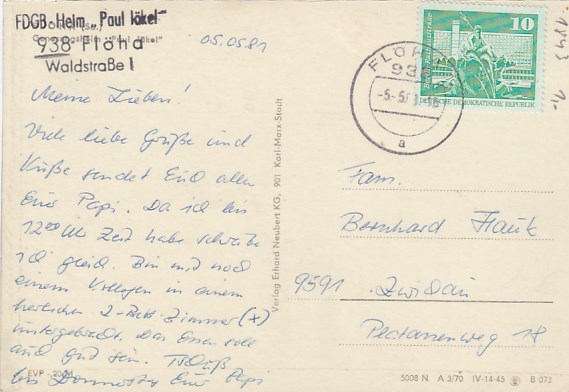 FDGB. Heim „Paul Jäkel"
938 Flöha
Waldstraße 1
05.05.81
Meine Lieben!
Viele liebe Grüße und
Küße sendet Euch allen
Euer Papi. Da ich bis
12 00 Uhr Zeit habe schreibe
ich gleich. Bin mit noch
einem Kollegen in einem
herrlichen 2-Bett-Zimmer (x)
untergebracht. Das Essen soll
auch gut sein. Tschüß
bis Donnerstag Euer Papi
EVP
Verlag Erhard Neubert KG, 901 Karl-Marx-Stadt
FLÖHA
938
-5.-5.
a
10
DEUTSCHE DEMOKRATISCHE REPUBLIK
1843
1,-
Fam.
Bernhard Hauk
9591 Zwickau
Platanenweg 18
5008 N A 3/70 IV-14-45 B 073